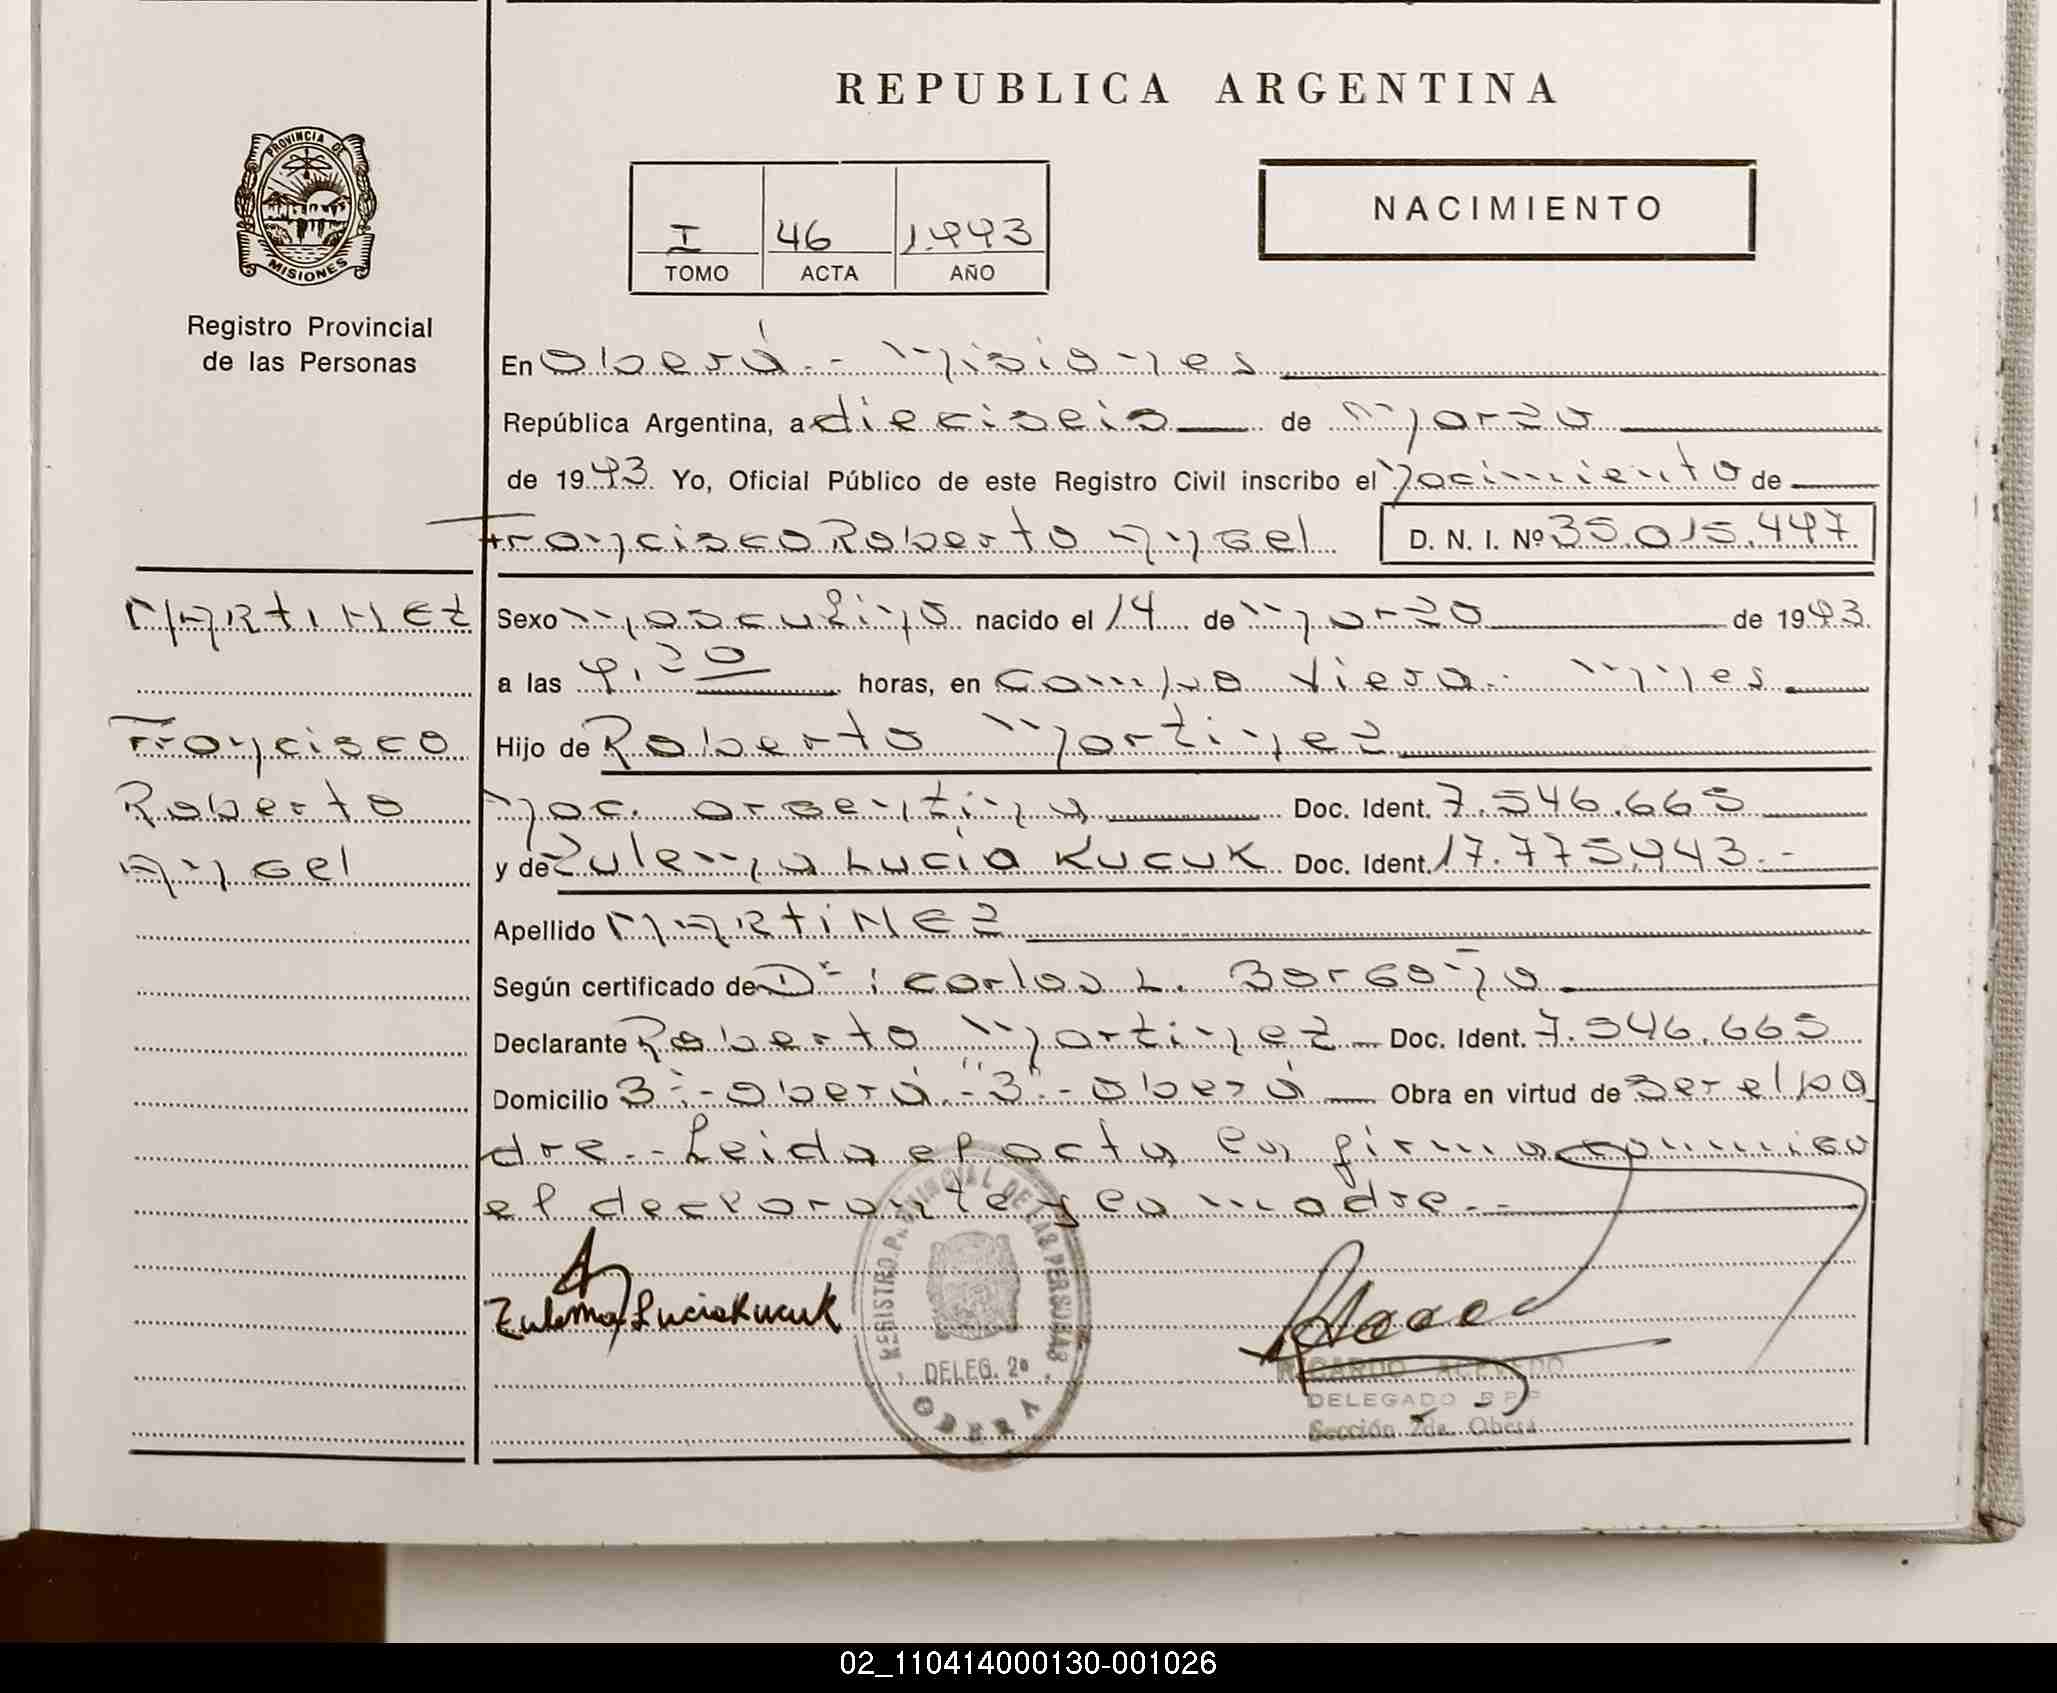 REPUBLICA ARGENTINA
PROVINCIA DE MISIONES
NACIMIENTO
I 46 1.993
TOMO ACTA AÑO
Registro Provincial
de las Personas
En Oberá - Misiones
República Argentina, a dieciseis de Marzo
de 1993 Yo, Oficial Público de este Registro Civil inscribo el Nacimiento de
Francisco Roberto Angel D. N. I. Nº 35.015.497
MARTINEZ
Francisco
Roberto
Angel
Sexo Masculino nacido el 14 de Marzo de 1993.
a las 9,20 horas, en Campo Viera - Mnes
Hijo de Roberto Martinez
Nac. argentina Doc. Ident. 7.546.665
y de Zulema Lucia Kucuk Doc. Ident. 17.775.943.-
Apellido MARTINEZ
Según certificado de Dr: Carlos L. Bargaño
Declarante Roberto Martinez Doc. Ident. 7.546.665
Domicilio 3ª-Oberá-"3"-Oberá Obra en virtud de Ser el pa
dre.- Leida el acta la firma conmigo
el declarante y la madre.-
Zulema Lucia Kucuk
REGISTRO PROVINCIAL DE LAS PERSONAS
DELEG. 2ª
OBERA
RICARDO ACEVEDO
DELEGADO R P P
Sección 2da. Oberá
02_110414000130-001026